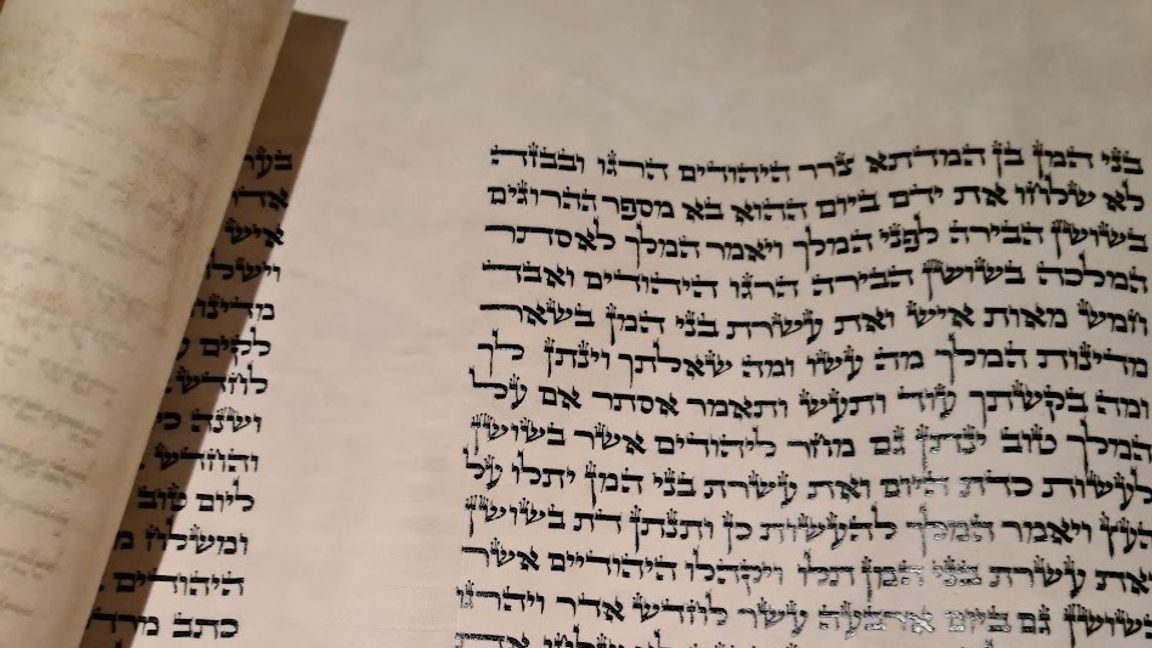 בני המן בן המדתא צרר היהודים הרגו ובבזה
לא שלחו את ידם ביום ההוא בא מספר ההרוגים
בשושן הבירה לפני המלך ויאמר המלך לאסתר
המלכה בשושן הבירה הרגו היהודים ואבד
חמש מאות איש ואת עשרת בני המן בשאר
מדינות המלך מה עשו ומה שאלתך וינתן לך
ומה בקשתך עוד ותעש ותאמר אסתר אם על
המלך טוב ינתן גם מחר ליהודים אשר בשושן
לעשות כדת היום ואת עשרת בני המן יתלו על
העץ ויאמר המלך להעשות כן ותנתן דת בשושן
ואת עשרת בני המן תלו ויקהלו היהודיים אשר
בשושן גם ביום ארבעה עשר לחדש אדר ויהרגו
איש
לקים
לחדש
ושנה
והחדש
ליום טוב
ומשלח
היהודים
כתב